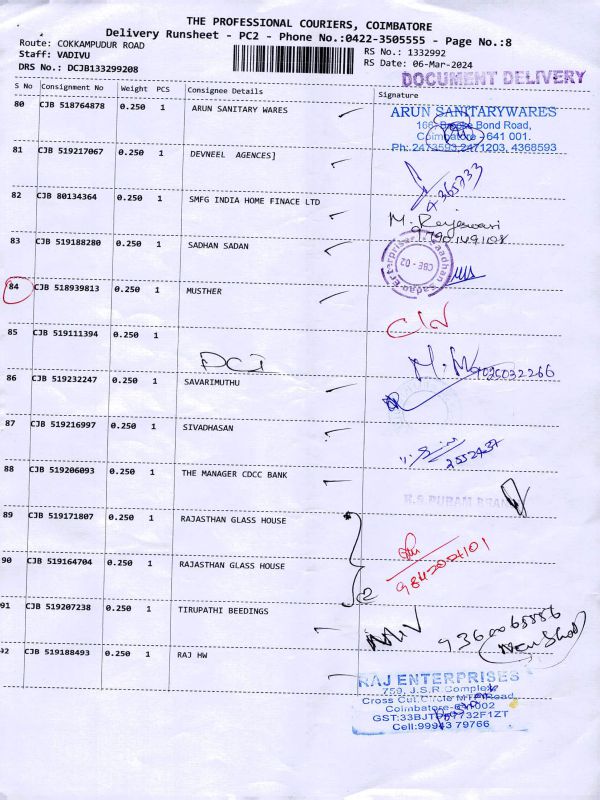 THE PROFESSIONAL COURIERS, COIMBATORE
Delivery Runsheet - PC2 - Phone No.:0422-3505555 - Page No.:8
Route: COKKAMPUDUR ROAD
Staff: VADIVU
DRS No.: DCJB133299208
RS No.: 1332992
RS Date: 06-Mar-2024
DOCUMENT DELIVERY
S No Consignment No Weight PCS Consignee Details Signature
80 CJB 518764878 0.250 1 ARUN SANITARY WARES
ARUN SANITARYWARES
Bond Road,
Coimbatore - 641 001.
Ph: 2473593,2471203, 4368593
81 CJB 519217067 0.250 1 DEVNEEL AGENCES]
4365733
82 CJB 80134364 0.250 1 SMFG INDIA HOME FINACE LTD
M. Rajeswari
83 CJB 519188280 0.250 1 SADHAN SADAN
CBE - 02
84 CJB 518939813 0.250 1 MUSTHER
85 CJB 519111394 0.250 1
86 CJB 519232247 0.250 1 SAVARIMUTHU
87 CJB 519216997 0.250 1 SIVADHASAN
2552437
88 CJB 519206093 0.250 1 THE MANAGER CDCC BANK
89 CJB 519171807 0.250 1 RAJASTHAN GLASS HOUSE
90 CJB 519164704 0.250 1 RAJASTHAN GLASS HOUSE
91 CJB 519207238 0.250 1 TIRUPATHI BEEDINGS
92 CJB 519188493 0.250 1 RAJ HW
RAJ ENTERPRISES
759, J.S.R Complex
Cross Cut,Circle Road,
Coimbatore-641002
Cell:99943 79766